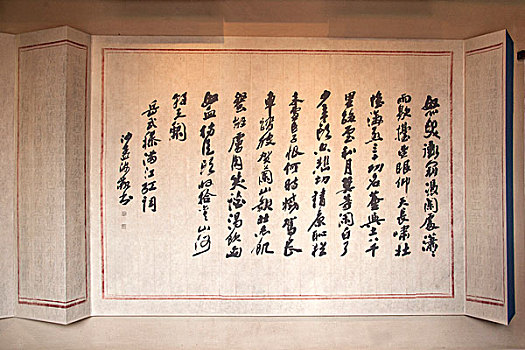 怒髮衝冠憑闌處瀟
雨歇擡望眼仰天長嘯壯
懷激烈三十功名塵與土八千
里路雲和月莫等閑白了
少年頭空悲切靖康恥猶
未雪臣子恨何時滅駕長
車踏破賀蘭山缺壯志飢
餐胡虜肉笑談渴飲匈
奴血待從頭收拾舊山河
朝天闕
岳武穆滿江紅詞
沙孟海書